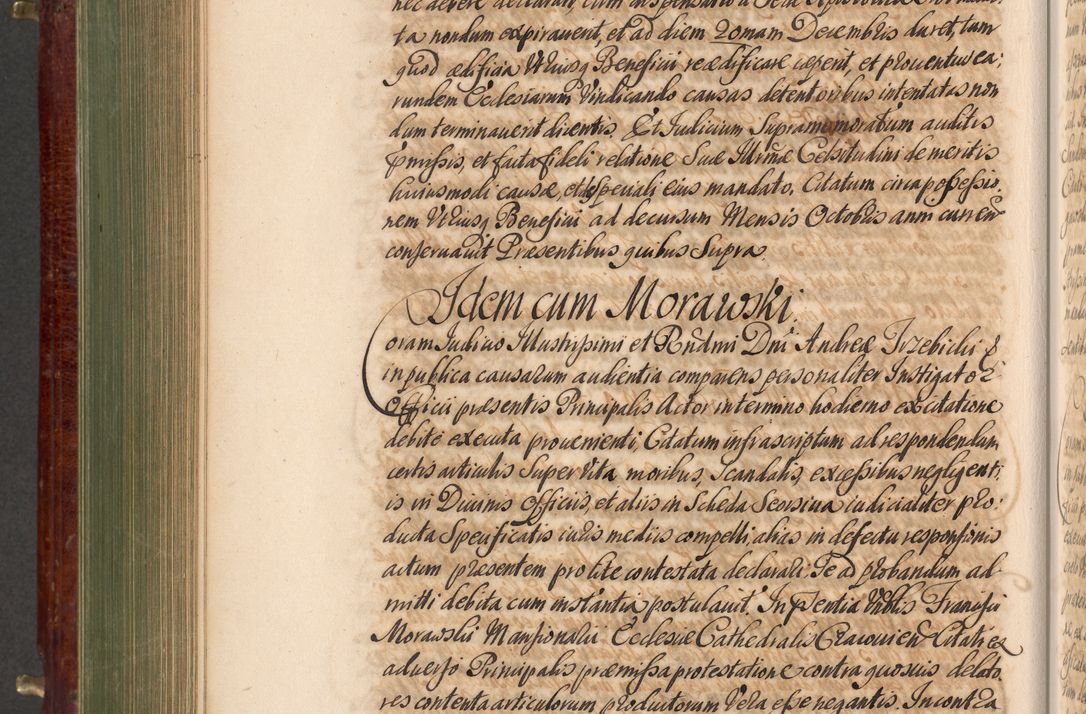 nec debere declarari, cum dispensatio a Sede Apostolica
ta nondum expirauerit, et ad diem 20mam Decembris duret, tum
quod ædificia Utriusq Beneficii reædificare cæperit, et prouentus ea;
rundem Ecclesiarum Vindicando causas detentoribus intentatas non
dum terminauerit dicentis, Et Iudicium Supramemoratum auditis
præmissis, et facta fideli relatione Suæ Illrmæ Celsitudini de meritis
huiusmodi causæ, et speciali eius mandato, Citatum circa possessio,
nem Utriusq Beneficii ad decursum Mensis Octobris anni curren
conseruauit Præsentibus quibus Supra
Idem cum Morawski.
Coram Iudicio Illustrissimi et Rñdmi Dñi Andreæ Trzebicki &
in publica causarum audientia comparens personaliter Instigator
Officii præsentis Principalis Actor in termino hodierno ex Citatione
debite executa prouenienti, Citatum infrascriptum ad respondendum
certis articulis Super Vita, moribus, Scandalis, excessibus negligenti,
is in Diuinis Officiis, et aliis in Scheda Seorsiua iudicialiter pro:
ducta Specificatis iuris mediis compelli, alias in defectu responsionis
actum præsentem pro lite contestata declarari, Se ad probandum ad-
mitti debita cum instantia postulauit. In Pñtia Vñblis Francisci
Morawski Mansionalis Ecclesiæ Cathedralis Cracouien Citati ex
aduerso Principalis præmissa protestatione contra quosuis delato,
res contenta articulorum productorum Vera esse negantis. In contra